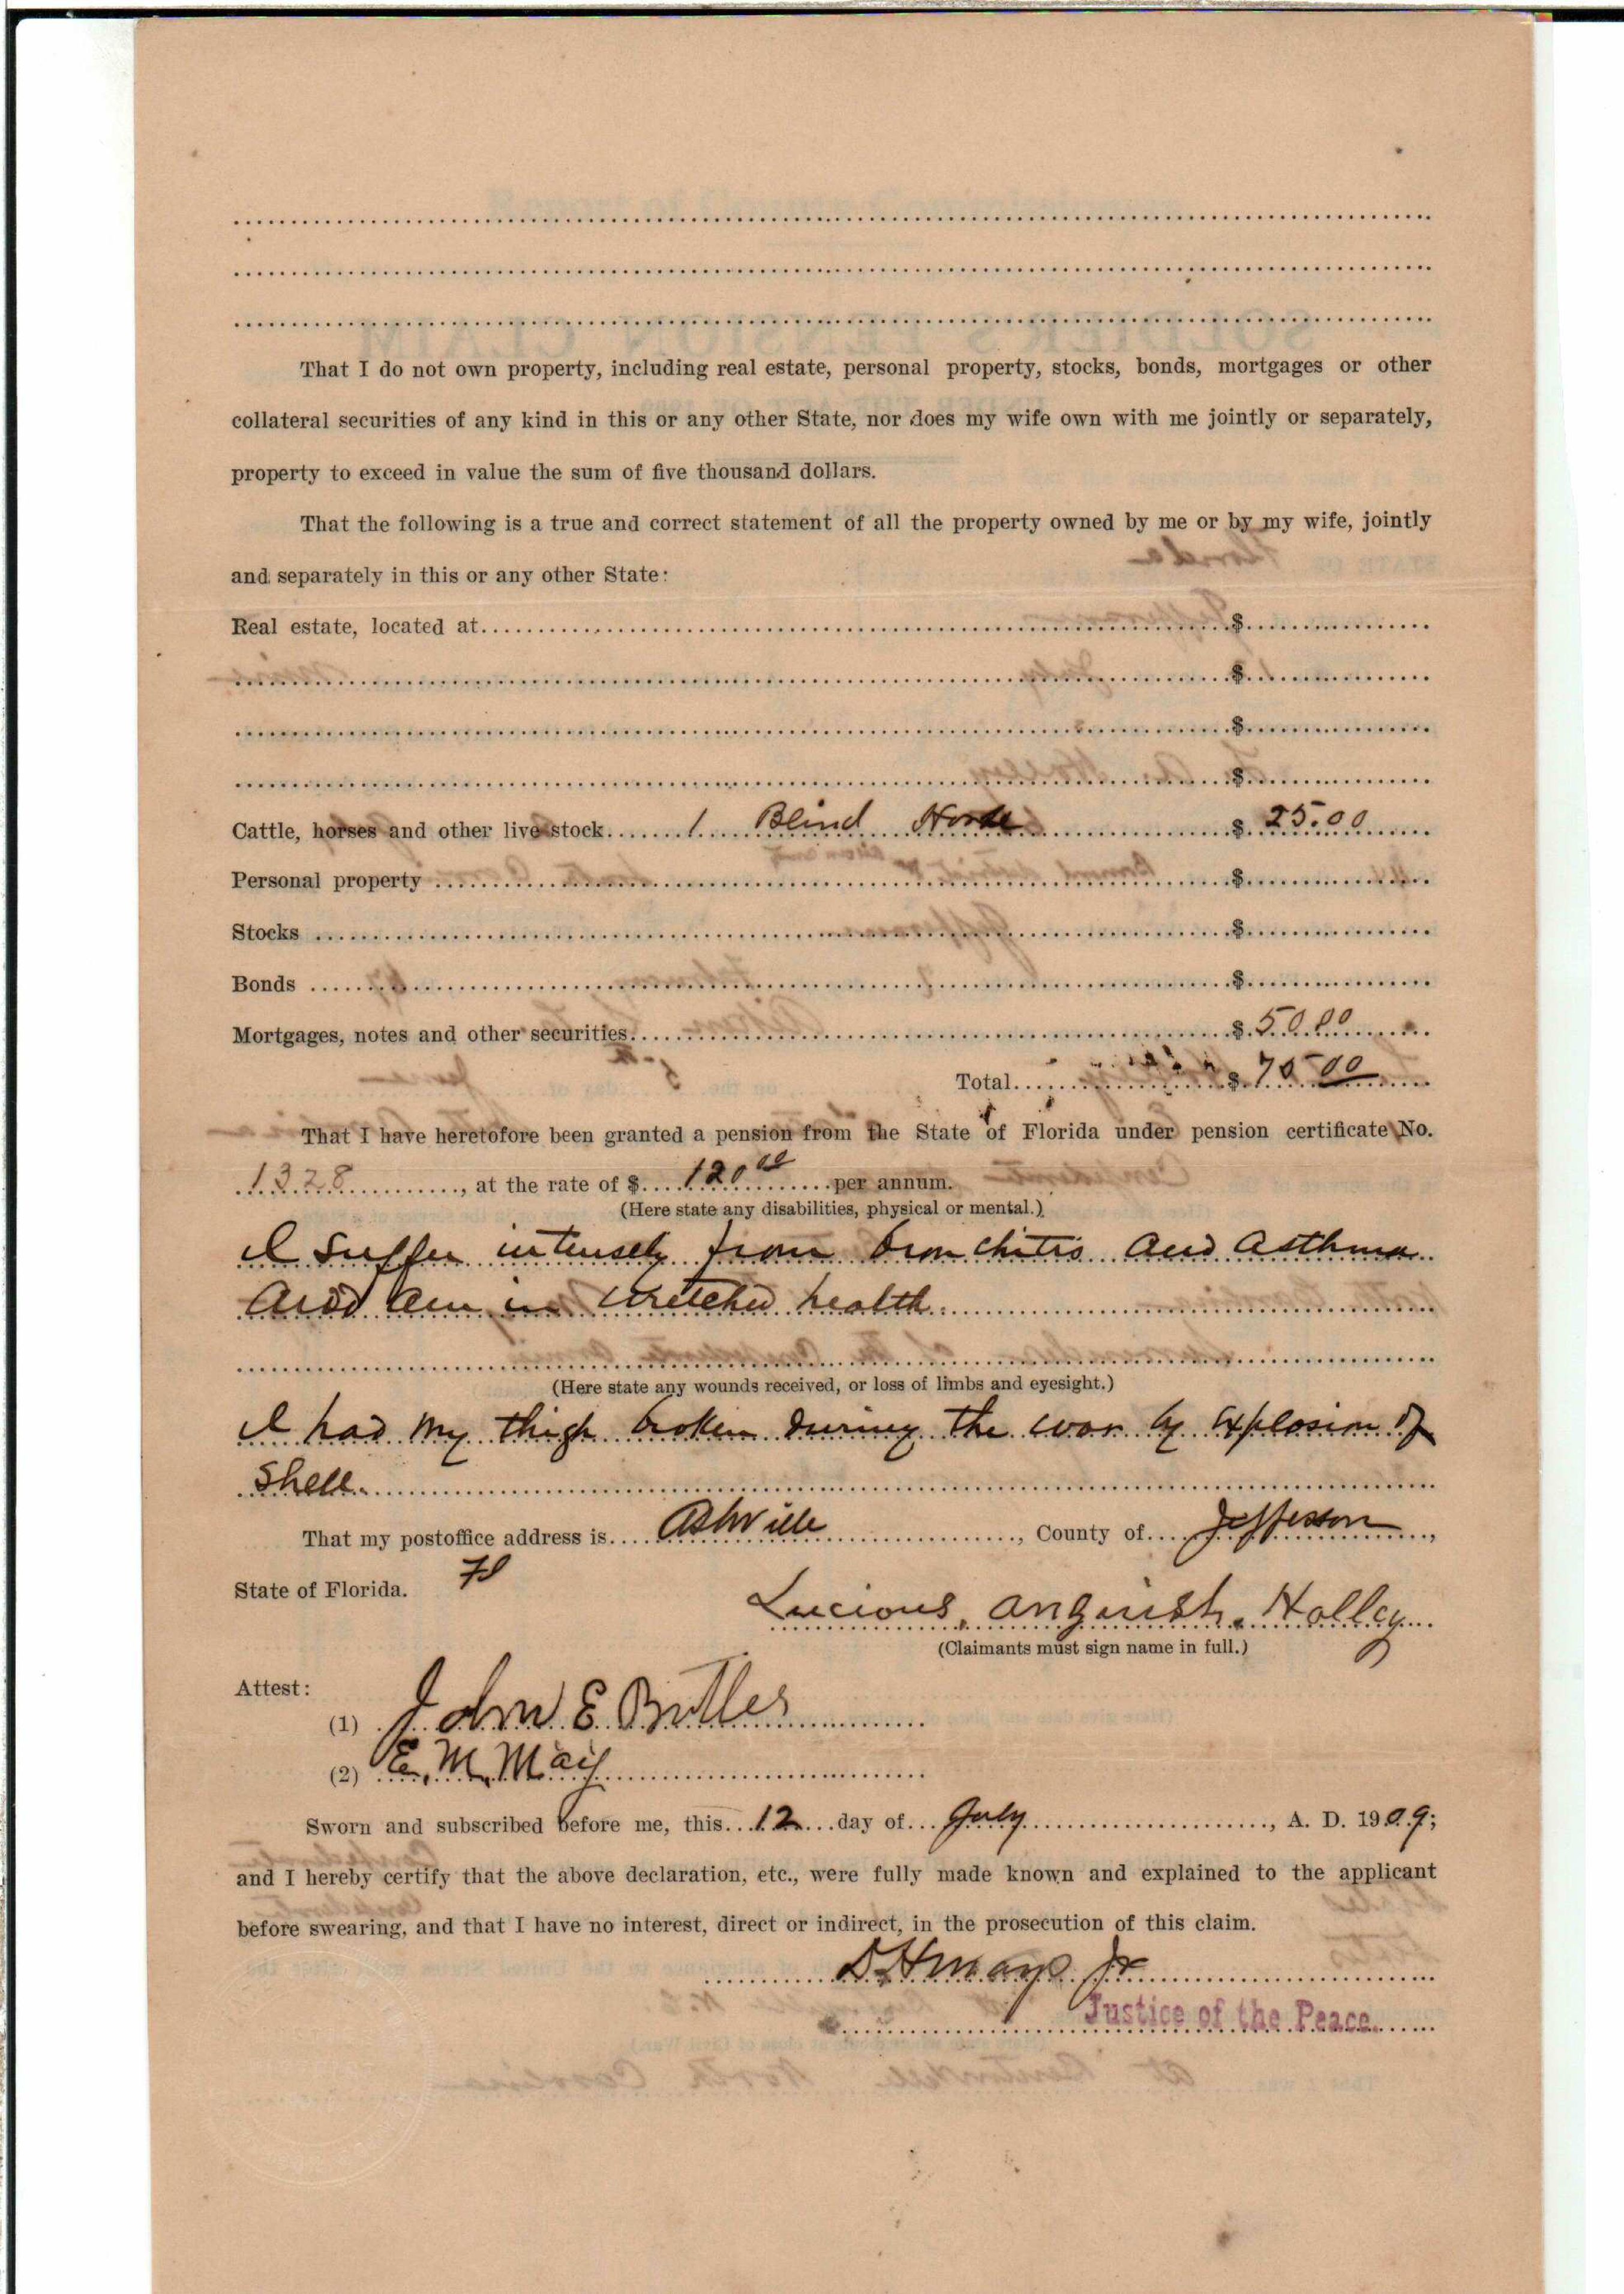 That I do not own property, including real estate, personal property, stocks, bonds, mortgages or other
collateral securities of any kind in this or any other State, nor does my wife own with me jointly or separately,
property to exceed in value the sum of five thousand dollars.
That the following is a true and correct statement of all the property owned by me or by my wife, jointly
and separately in this or any other State:
Real estate, located at $
$
$
$
Cattle, horses and other live stock 1 Blind Horse $ 25.00
Personal property $
Stocks $
Bonds $
Mortgages, notes and other securities $ 50.00
Total $ 75 00
That I have heretofore been granted a pension from the State of Florida under pension certificate No.
1328, at the rate of $ 120 00 per annum.
(Here state any disabilities, physical or mental.)
I Suffer intensely from bronchitis and asthma
and am in wretched health.
(Here state any wounds received, or loss of limbs and eyesight.)
I had my thigh broken during the war by explosion of
Shell.
That my postoffice address is Ashville, County of Jefferson,
State of Florida. Fl
Lucious Anguish Holley
(Claimants must sign name in full.)
Attest:
(1) John E Butler
(2) E. M. May
Sworn and subscribed before me, this 12 day of July, A. D. 1909;
and I hereby certify that the above declaration, etc., were fully made known and explained to the applicant
before swearing, and that I have no interest, direct or indirect, in the prosecution of this claim.
D H Mays Jr
Justice of the Peace.